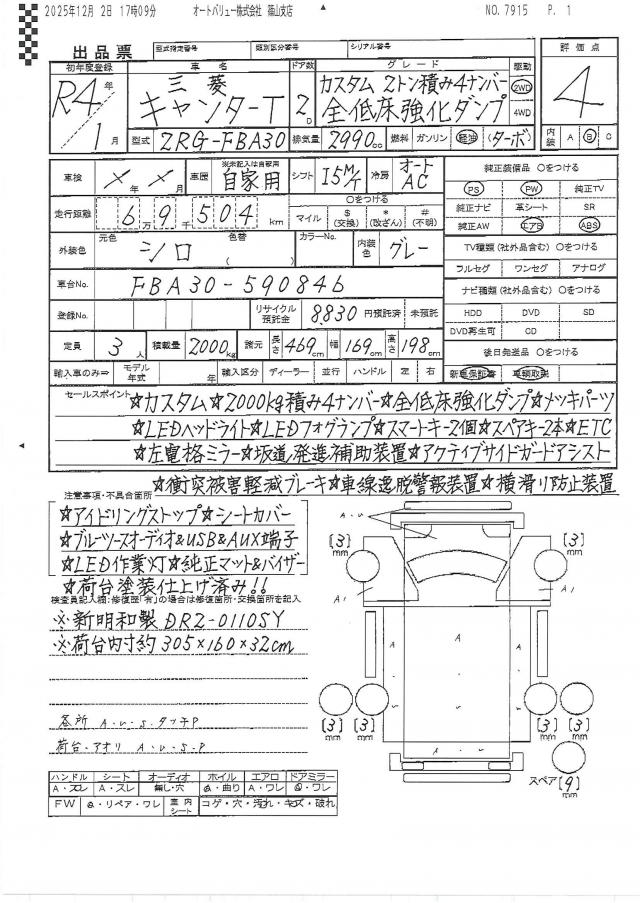 2025年12月 2日 17時09分 オートバリュー株式会社 篠山支店 NO. 7915 P. 1
出品票 型式指定番号 類別区分番号 シリアル番号 評価点
初年度登録 車名 ドア数 グレード 駆動
R4年 三菱 カスタム 2トン積み4ナンバー 2WD 4
1月 キャンターT 2D 全低床強化ダンプ 4WD
型式 2RG-FBA30 排気量 2990cc 燃料 ガソリン 軽油 (ターボ) 内装 A B C
車検 ×年×月 車歴 ※未記入は自家用 自家用 シフト I5M/T 冷房 オートAC 純正装備品 ○をつける
PS PW 純正TV
走行距離 6万9千504km ○をつける マイル $(交換) *(改ざん) #(不明) 純正ナビ 革シート SR
純正AW エアB ABS
外装色 元色 シロ 色替 ( ) カラーNo. 内装色 グレー TV種類(社外品含む) ○をつける
フルセグ ワンセグ アナログ
車台No. FBA30-590846 ナビ種類(社外品含む) ○をつける
登録No. リサイクル預託金 8,830円預託済 未預託 HDD DVD SD
DVD再生可 CD
定員 3人 積載量 2000kg 諸元 長さ469cm 幅169cm 高さ198cm 後日発送品 ○をつける
輸入車のみ⇒ モデル年式 年 輸入区分 ディーラー 並行 ハンドル 左 右 新車保証書 車輌取説
セールスポイント ☆カスタム☆2000kg積み4ナンバー☆全低床強化ダンプ☆メッキパーツ
☆LEDヘッドライト☆LEDフォグランプ☆スマートキー2個☆スペアキー2本☆ETC
☆左電格ミラー☆坂道発進補助装置☆アクティブサイドガードアシスト
☆衝突被害軽減ブレーキ☆車線逸脱警報装置☆横滑り防止装置
注意事項・不具合箇所
☆アイドリングストップ☆シートカバー
☆ブルーツースオーディオ&USB&AUX端子
☆LED作業灯☆純正マット&バイザー
☆荷台塗装仕上げ済み!!
検査員記入欄:修復歴「有」の場合は修復箇所・交換箇所を記入
※新明和製 DRZ-01105Y
※荷台内寸約305×160×32cm
各所 A・U・S・タッチP
荷台・アオリ A・U・S・P
A・U
(3)mm (3)mm
A A
A1 A1
A A A
(3)mm (3)mm (3)mm (3)mm
A
スペア (9)mm
ハンドル シート オーディオ ホイル エアロ ドアミラー
A・スレ A・スレ 無し・穴 A・曲り A・ワレ A・ワレ
FW A・リペア・ワレ 室内シート コゲ・穴・汚れ・キズ・破れ